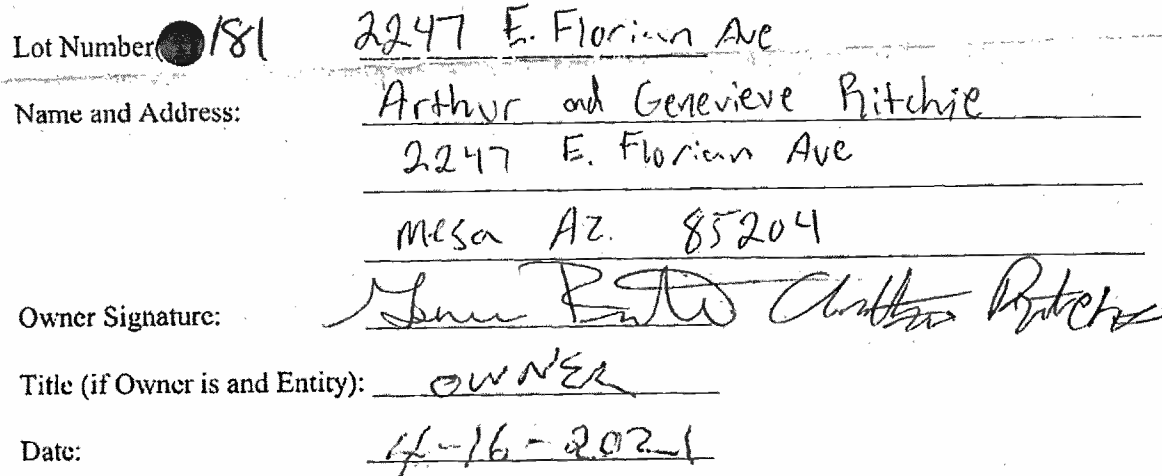 Lot Number 181 2247 E. Florian Ave
Name and Address: Arthur and Genevieve Ritchie
2247 E. Florian Ave
Mesa AZ. 85204
Owner Signature: Arthur Ritchie
Title (if Owner is and Entity): OWNER
Date: 4-16-2021